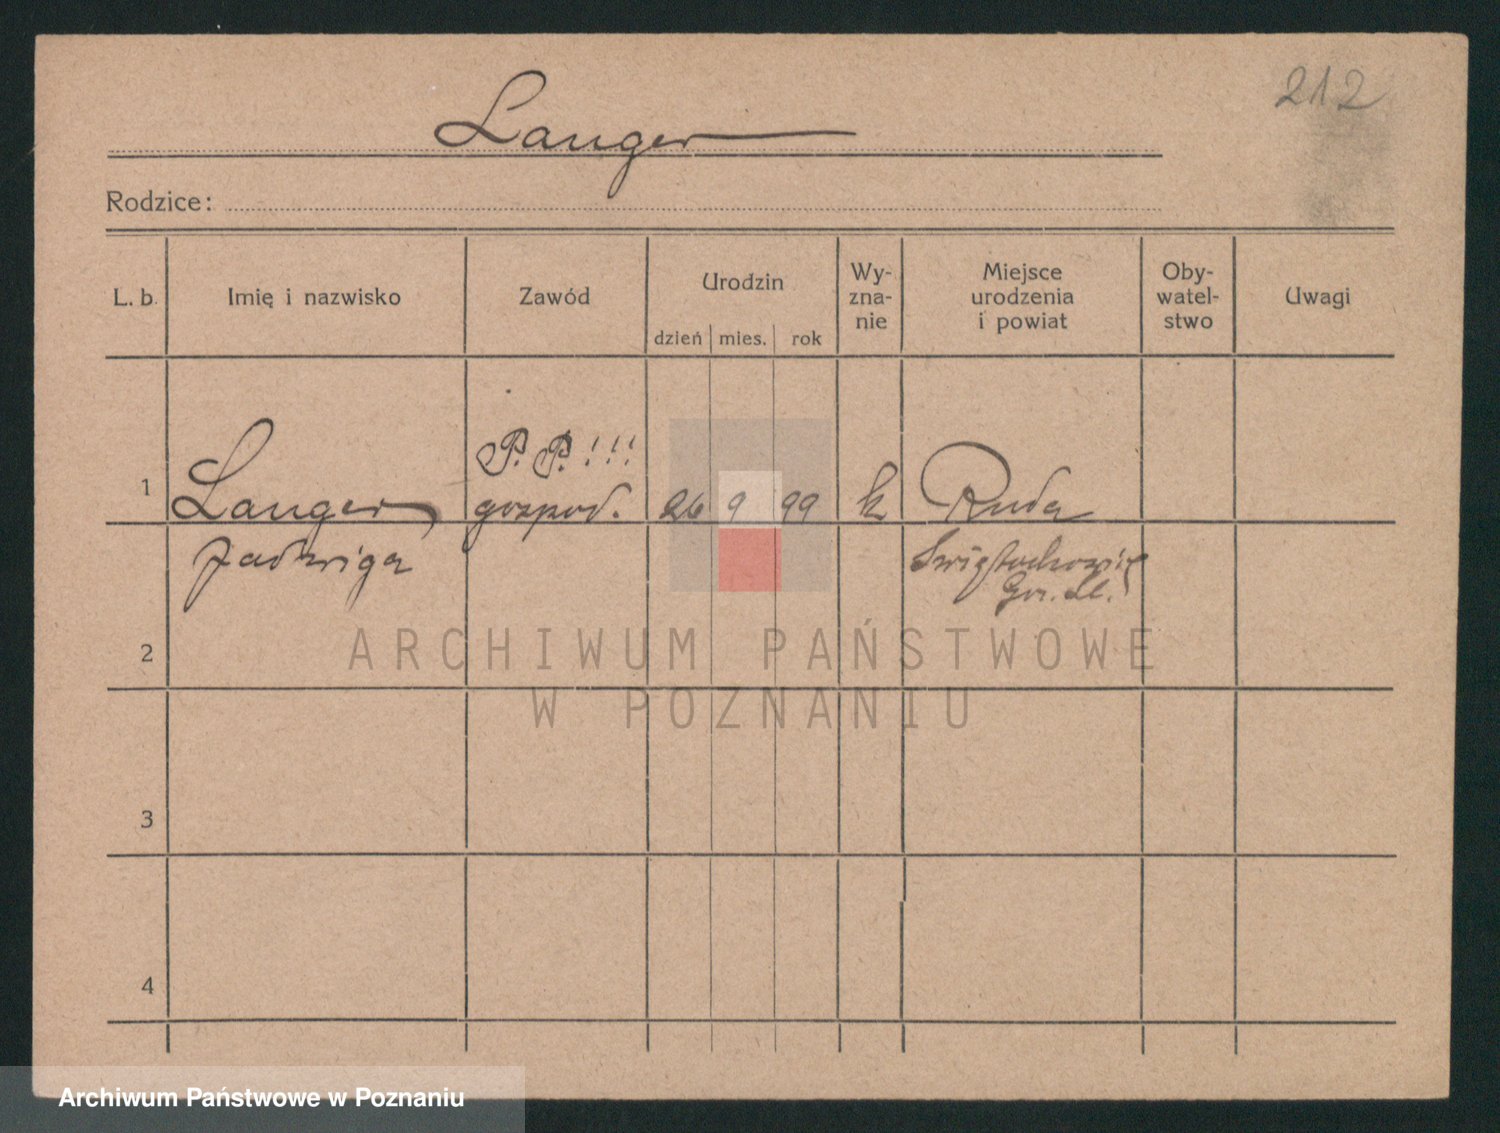 212
Langer
Rodzice:
L. b. Imię i nazwisko Zawód Urodzin dzień mies. rok Wy-zna-nie Miejsce urodzenia i powiat Oby-watel-stwo Uwagi
P. P. !!!
1 Langer gospod. 26 9 99 k Ruda
Jadwiga Świętochowice
Gór. Śl.
2
ARCHIWUM PAŃSTWOWE
W POZNANIU
3
4
Archiwum Państwowe w Poznaniu